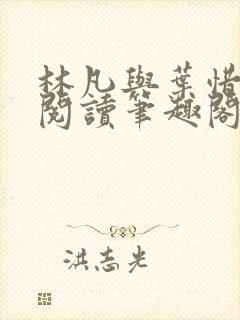 林凡與葉惜
閱讀筆趣閣
洪志光